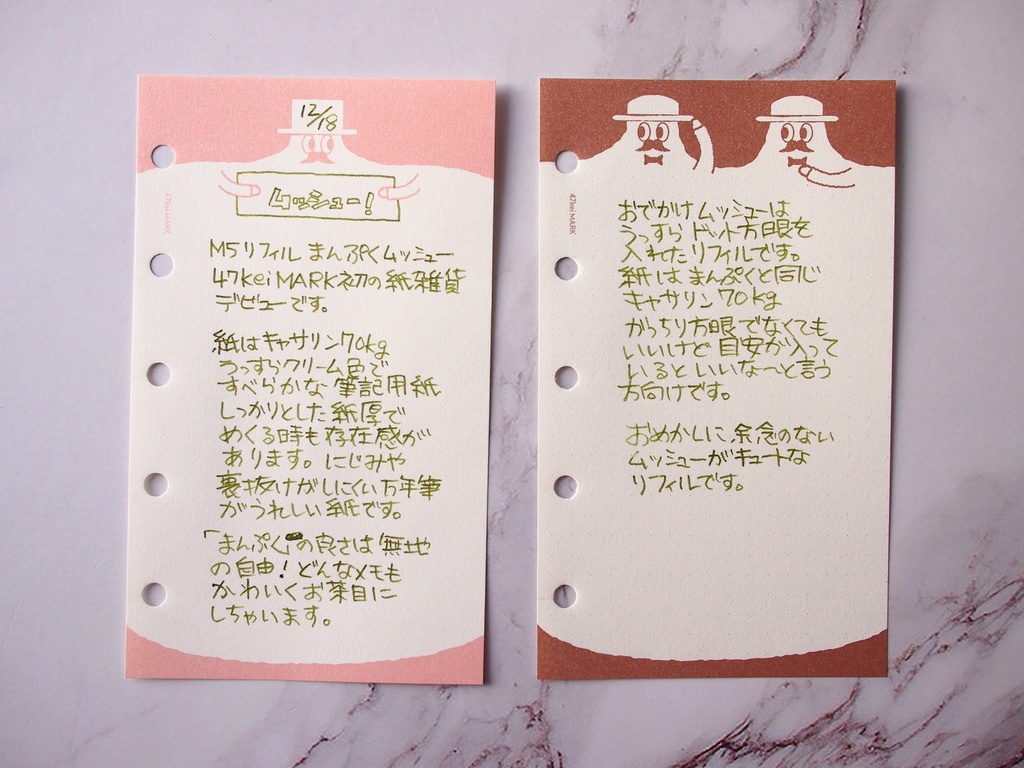 12/18
ムッシュー!
47kei MARK
M5リフィル まんぷくムッシュー
47kei MARK初の紙雑貨
デビューです。
紙はキャサリン70kg
うっすらクリーム色で
すべらかな筆記用紙
しっかりとした紙厚で
めくる時も存在感が
あります。にじみや
裏抜けがしにくい万年筆
がうれしい紙です。
「まんぷく」の良さは無地
の自由!どんなメモも
かわいくお茶目に
しちゃいます。
47kei MARK
おでかけムッシューは
うっすらドット方眼を
入れたリフィルです。
紙はまんぷくと同じ
キャサリン70kg
がっちり方眼でなくても
いいけど目安が入って
いるといいな〜と言う
方向けです。
おめかしに余念のない
ムッシューがキュートな
リフィルです。